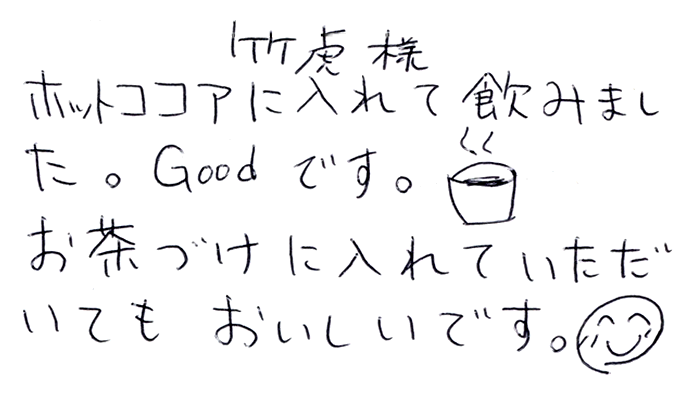 竹虎様
ホットココアに入れて飲みまし
た。Goodです。
お茶づけに入れていただ
いてもおいしいです。